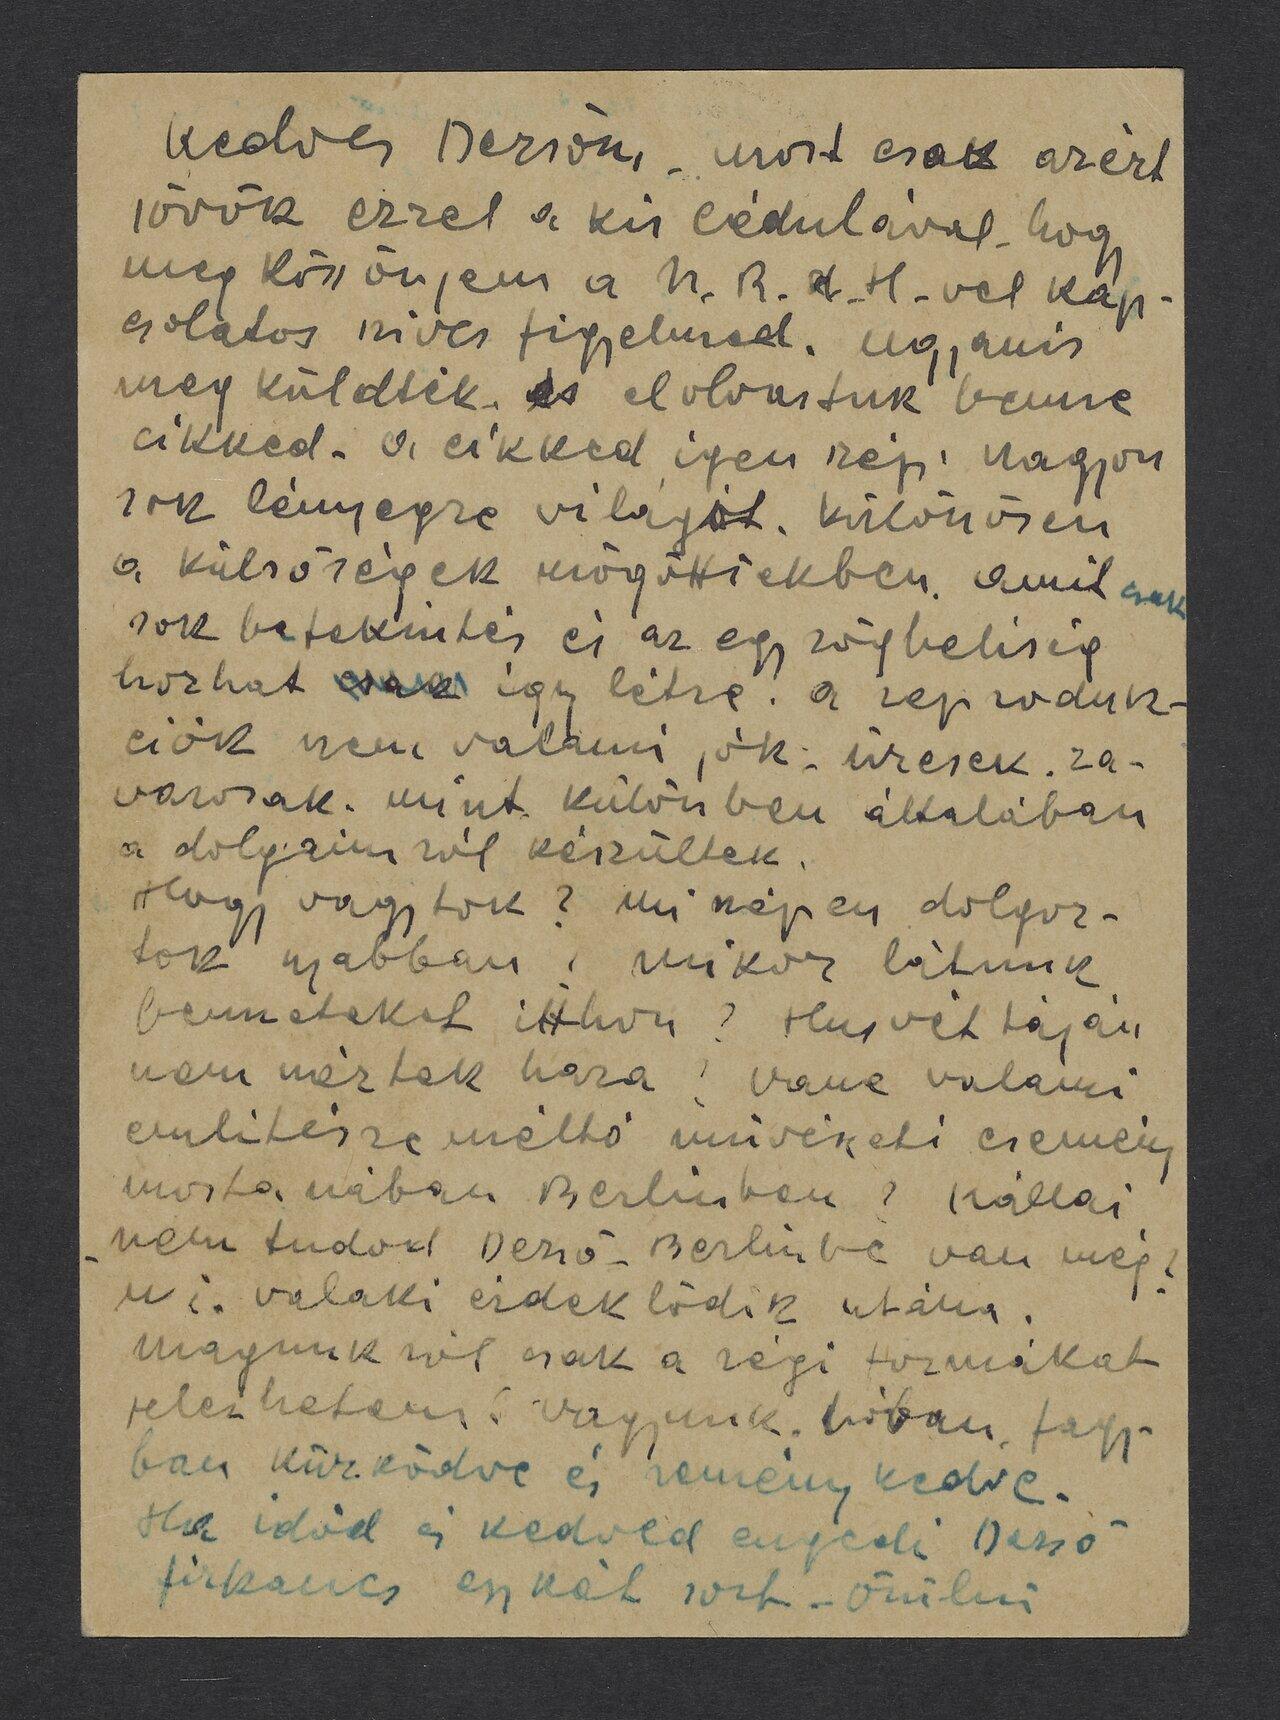 Kedves Dezsőm, – most csak azért
jövök ezzel a kis cédulával – hogy
megköszönjem a N. R. d. H. – vel kap-
csolatos szives figyelmed. Ugyanis
megküldték. és elolvastuk benne
cikked. – A cikked igen szép. Nagyon
sok lényegre világít. különösen
a külsőségek mögöttiekben. amit csak
sok betekintés és az egy rögbeliség
hozhat így létre. A reproduk-
ciók nem valami jók – üresek. za-
varosak. mint különben általában
a dolgaimról készültek.
Hogy vagytok? Mi szépen dolgoz-
tok ujabban? Mikor látunk
benneteket itthon? Husvét táján
nem néztek haza? Vane valami
emlitésre méltó müvészeti esemény
mostanában Berlinben? Kállai
nem tudod Dezső – Berlinbe van még?
u i. valaki érdeklődik utána.
Magunkról csak a régi formákat
jelezhetem: Vagyunk. hóban, fagy-
ban küzködve és reménykedve.
Ha időd és kedved engedi Dezső
firkancs egy két sort – örülni